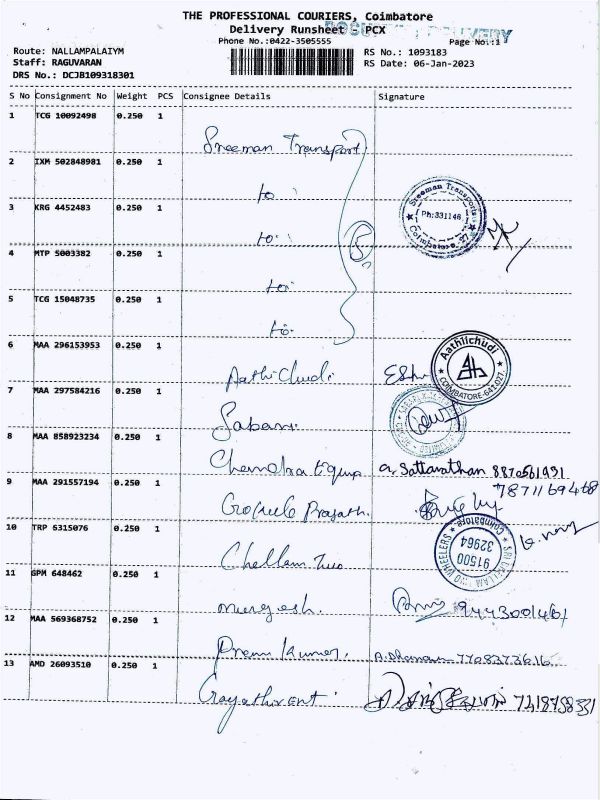 THE PROFESSIONAL COURIERS, Coimbatore
Delivery Runsheet PCX
DELIVERY
Phone No.:0422-3505555
Page No.:1
Route: NALLAMPALAIYM
RS No.: 1093183
Staff: RAGUVARAN
RS Date: 06-Jan-2023
DRS No.: DCJB109318301
S No Consignment No Weight PCS Consignee Details Signature
1 TCG 10092498 0.250 1
Sreeman Transport
2 IXM 502848981 0.250 1
to
Sreeman Transports
Ph:331148
Coimbatore-27
3 KRG 4452483 0.250 1
to
5
4 MTP 5003382 0.250 1
to
5 TCG 15048735 0.250 1
to
6 MAA 296153953 0.250 1
Aathi Chudi
Aathiichudi
COIMBATORE-641 027
7 MAA 297584216 0.250 1
Sabari
8 MAA 858923234 0.250 1
Chandra Equip a. Sattanathan 8870561931
9 MAA 291557194 0.250 1
7871169468
Gokul Prajath
10 TRP 6315076 0.250 1
Chellam Two
SRI CHELLAM TWO WHEELERS
Coimbatore
91500 32964
11 GPM 648462 0.250 1
murgesh. 9443001461
12 MAA 569368752 0.250 1
Prem Kumar. 7708373616
13 AMD 26093510 0.250 1
Gayathri Ent 7418758331